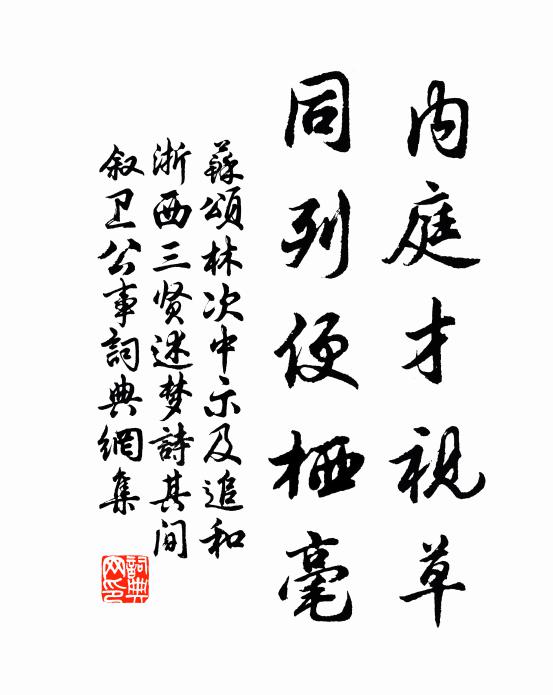 内庭才视草
同列便栖毫
蘇頌林次中示及追和
浙西三贤述梦詩其间
叙卫公事詞典網集
詞典网印